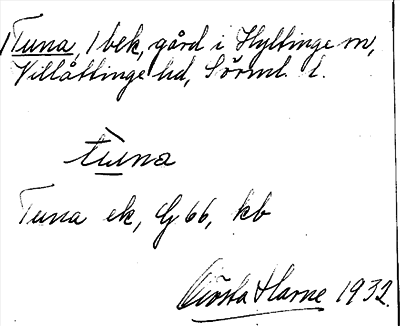 Tuna, 1 bek, gård i Hyltinge sn,
Villåttinge hd, Sörml. l.
tuna
Tuna ek, G 66, kb
Gösta Harne 1932.